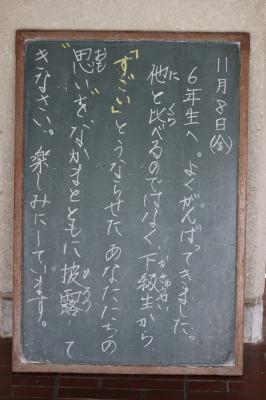 11月8日(金)
6年生へ。よくがんばってきました。
他と比べるのではなく、下級生から
「すごい」とうならせたあなたたちの
思いを、なかまとともに披露して
きなさい。楽しみにしています。